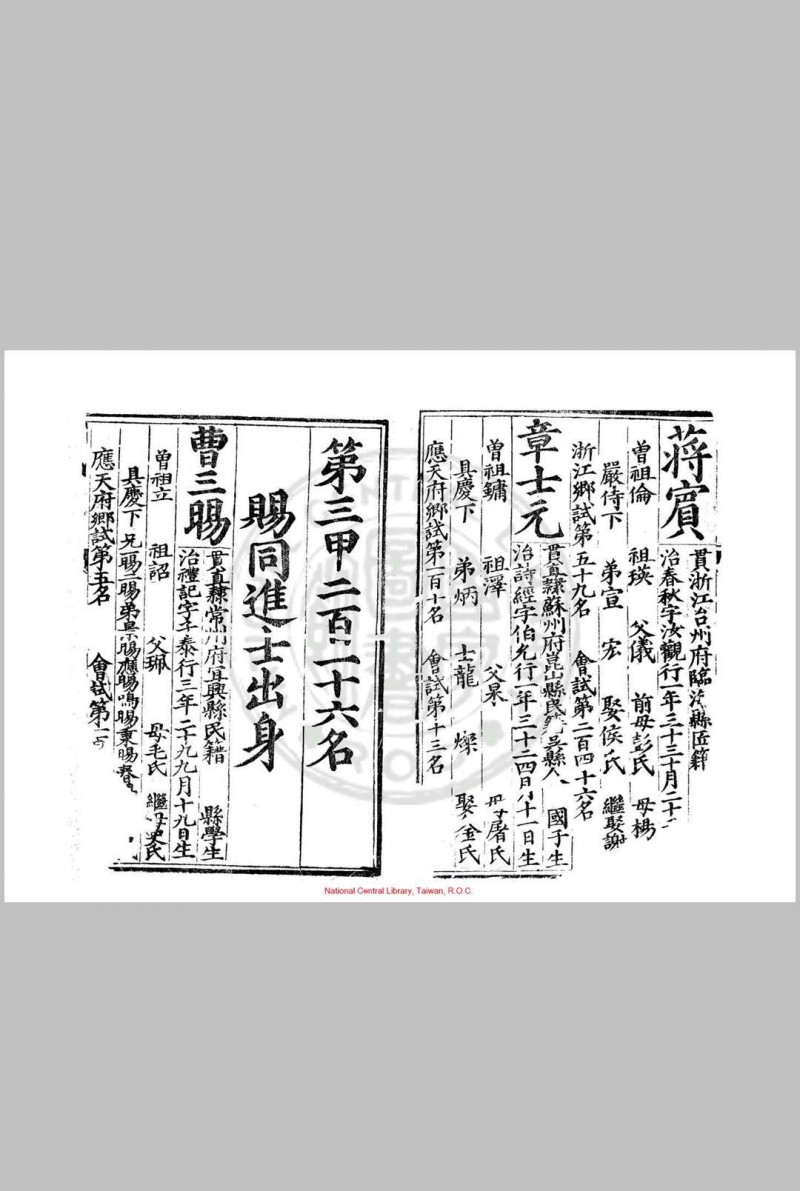 蔣賓
貫浙江台州府臨海縣匠籍
治春秋字汝觀行一年三十三十月二十
曾祖倫 祖瑛 父儀 前母彭氏 母楊
嚴侍下 弟宣 宏 娶侯氏 繼娶謝
浙江鄉試第五十九名 會試第二百四十六名
章士元
貫直隸蘇州府崑山縣民籍吳縣人 國子生
治詩經字伯允行一年三十二四月十一日生
曾祖鏞 祖澤 父杲 母屠氏
具慶下 弟炳 士龍 燦 娶金氏
應天府鄉試第一百十名 會試第十三名
第三甲二百二十六名
賜同進士出身
曹三暘
貫直隸常州府宜興縣民籍 縣學生
治禮記字子泰行三年二十九九月十九日生
曾祖立 祖詔 父珮 母毛氏 繼母史氏
具慶下 兄一暘二暘弟景暘應暘鳴暘秉暘春
應天府鄉試第五名 會試第一百
National Central Library, Taiwan, R.O.C.